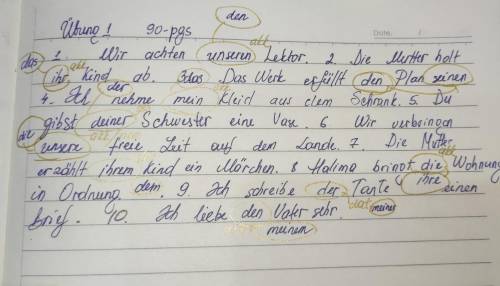 den
Übung 1 90-pgs
Date. /
akk
das 1. Wir achten unseren Lektor. 2. Die Mutter holt
ihr Kind ab. 3 das Das Werk erfüllt den Plan seinen
der
4. Ich nehme mein Kleid aus dem Schrank. 5. Du
die gibst deiner Schwester eine Vase. 6 Wir verbringen
unsere freie Zeit auf dem Lande. 7. Die Mutter
akk
erzählt ihrem Kind ein Märchen. 8 Halima bringt die Wohnung
ihre
in Ordnung dem. 9. Ich schreibe der Tante einen
dat meiner
Brief. 10. Ich liebe den Vater sehr.
meinen